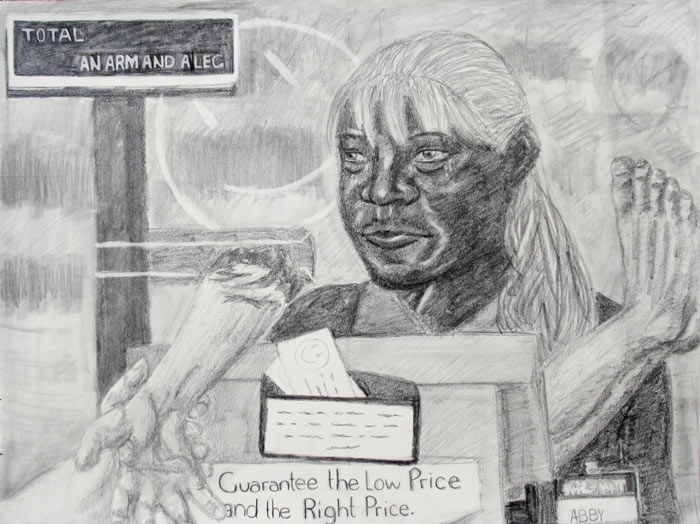 TOTAL
AN ARM AND A LEG
Guarantee the Low Price
and the Right Price.
WAL-MART
ABBY